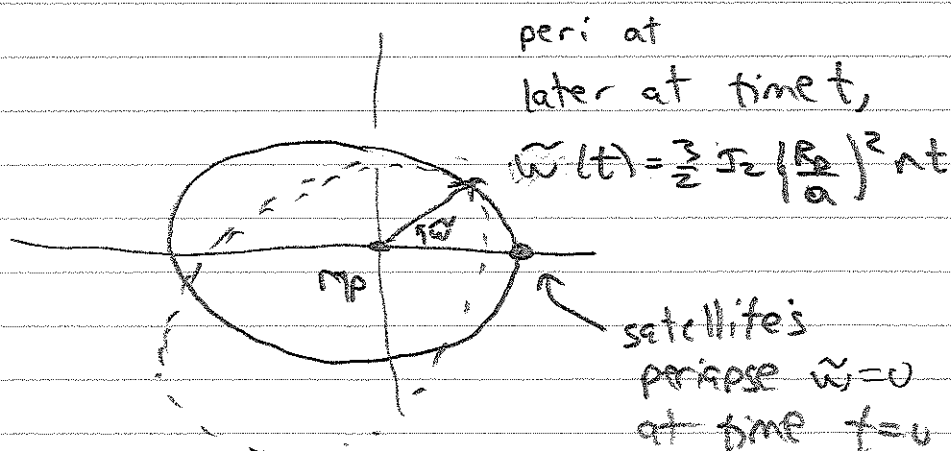 peri at
later at time t,
ω̃(t) = 3/2 J₂ (Rp/a)² nt
ω̃
mp
satellite's
periapse ω̃=0
at time t=0